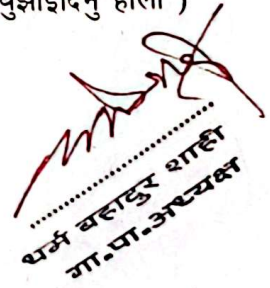 बुझाइदिनु होला )
....................
धर्म बहादुर शाही
गा.पा.अध्यक्ष